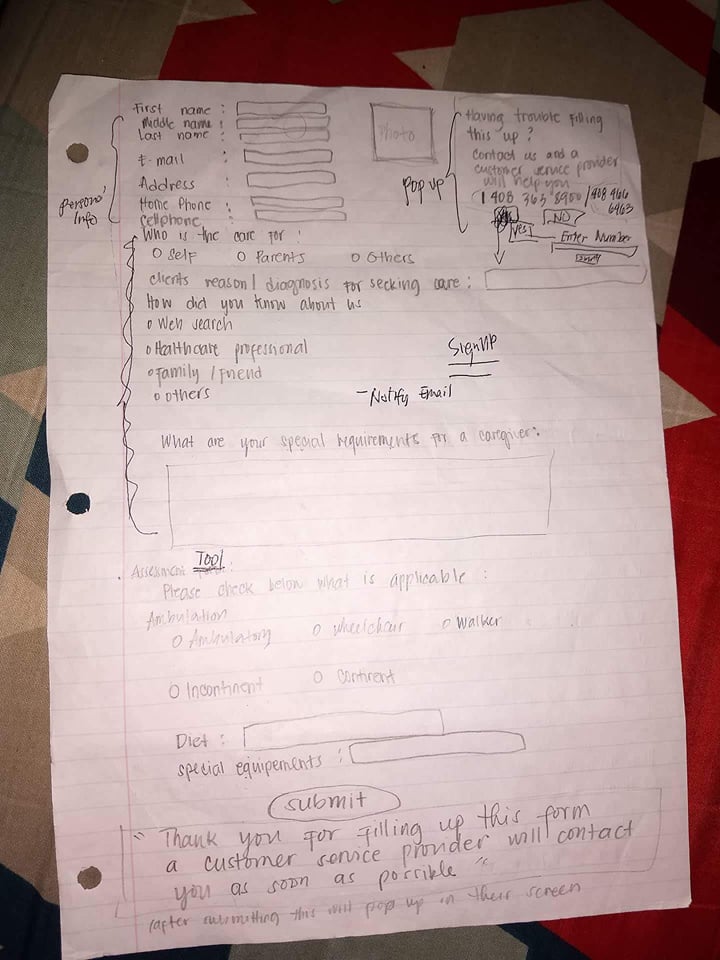 First name :
Middle name :
Last name :
E-mail :
Address :
Home Phone :
Cellphone :
Personal Info
Photo
Pop up
Having trouble filling
this up?
Contact us and a
customer service provider
will help you
1 408 365 8900 / 408 466
6963
NO
Yes
Enter Number
Who is the care for :
O Self O Parents O Others
clients reason / diagnosis for seeking care :
How did you know about us
o Web search
o Healthcare professional
o Family / Friend
o others
Sign Up
- Notify Email
What are your special requirements for a caregiver :
Assessment Tool :
Please check below what is applicable :
Ambulation
O Ambulatory O wheelchair O Walker
O Incontinent O Continent
Diet :
special equipements :
submit
" Thank you for filling up this form
a customer service provider will contact
you as soon as possible "
(after submitting this will pop up in their screen